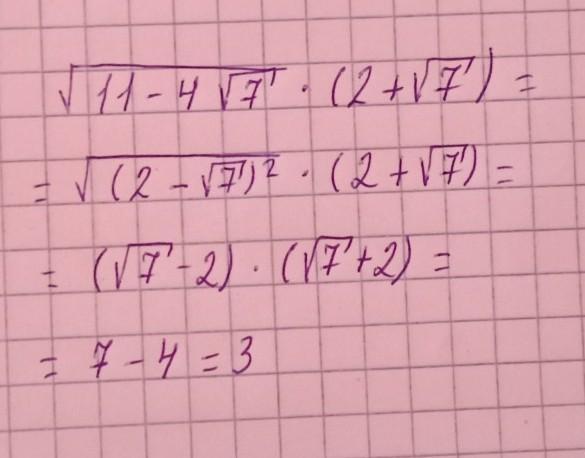 √(11 - 4√7) · (2 + √7) =
= √((2 - √7)²) · (2 + √7) =
= (√7 - 2) · (√7 + 2) =
= 7 - 4 = 3